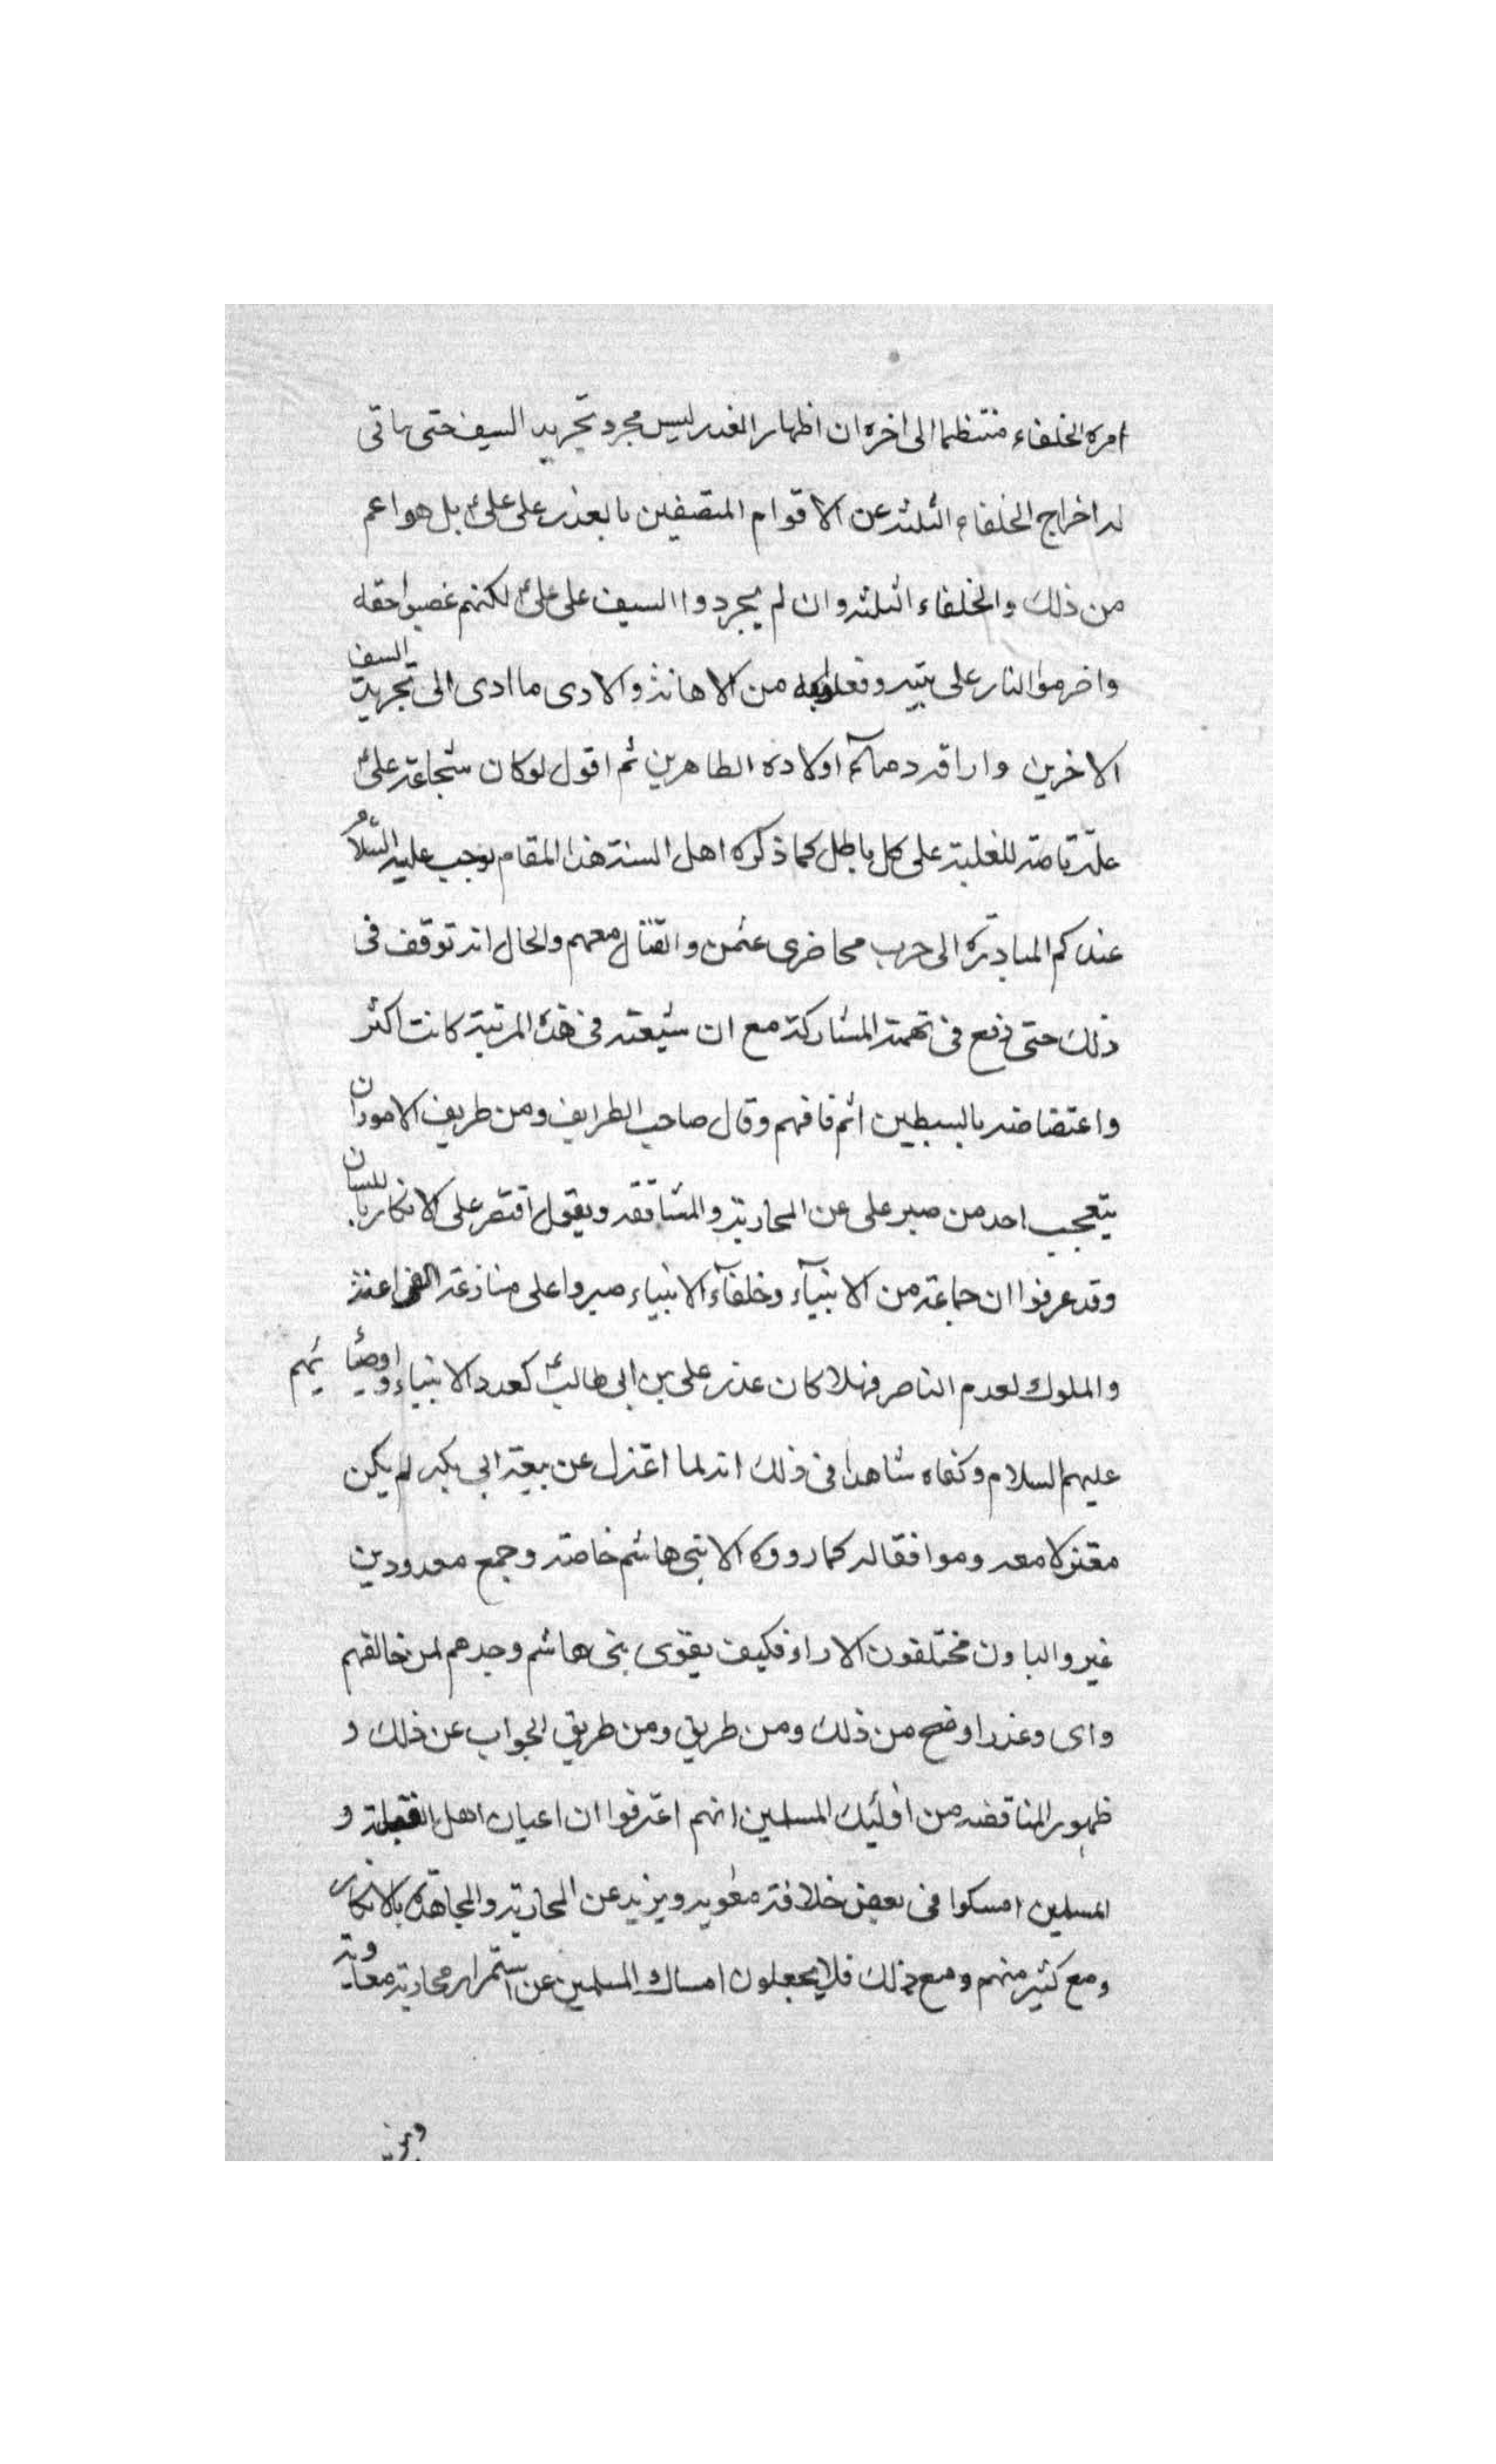 امره الخلفاء منتظما الى اخره ان اظهار الغدر ليس مجرد تجريد السيف حتى ياتى
له اخراج الخلفاء الثلثه عن الاقوام المتصفين بالغدر على علىؑ بل هو اعم
من ذلك والخلفاء الثلثه وان لم يجردوا السيف على علىؑ لكنهم غصبوا حقه
واضرموا النار على بيته وفعلوا به من الاهانة والاذى ما ادى الى تجريد السيف
الاخرين واراقه دمائهم اولاده الطاهرين ثم اقول لو كان شجاعة علىؑ
علة تامه للغلبة على كل باطل كما ذكره اهل السنة هذا المقام لوجب عليه السلام
عندكم المبادرة الى حرب محاضرى عثمن والقتال معهم والحال انه توقف فى
ذلك حتى وقع فى تهمة المشاركة مع ان شيعته فى هذه المرتبة كانت اكثر
واعتضاضه بالسبطين اتم فافهم وقال صاحب الطرايف ومن طريف الامور ان
يتعجب احد من صبر على عن المحاربة والمشاققه ويقول اقتصر على الانكار باللسان
وقد عرفوا ان جماعة من الانبياء وخلفاء الانبياء صبروا على منازعة الفراعنة
والملوك لعدم الناصر فهلا كان عذر على بن ابى طالبؑ كعدد الانبياء و اوصيائهم
عليهم السلام وكفاه شاهدا فى ذلك انه لما اعتزل عن بيعة ابى بكر لم يكن
معتزلا معه وموافقا له كما رووه الا بنى هاشم خاصة وجمع معدودين
غير والباون مختلفون الاراء فكيف يقوى بنى هاشم وحدهم لمن خالفهم
واى وعذر اوضح من ذلك ومن طريق ومن طريق الجواب عن ذلك و
ظهور المناقضه من اولئك المسلمين انهم اعترفوا ان اعيان اهل القبلة و
المسلمين امسكوا فى بعض خلافة معويه ويزيد عن المحاربة والمجاهدة بالانكار
ومع كثير منهم ومع ذلك فلا يجعلون امساك المسلمين عن استمرار محاربة معاوية
ويزيد